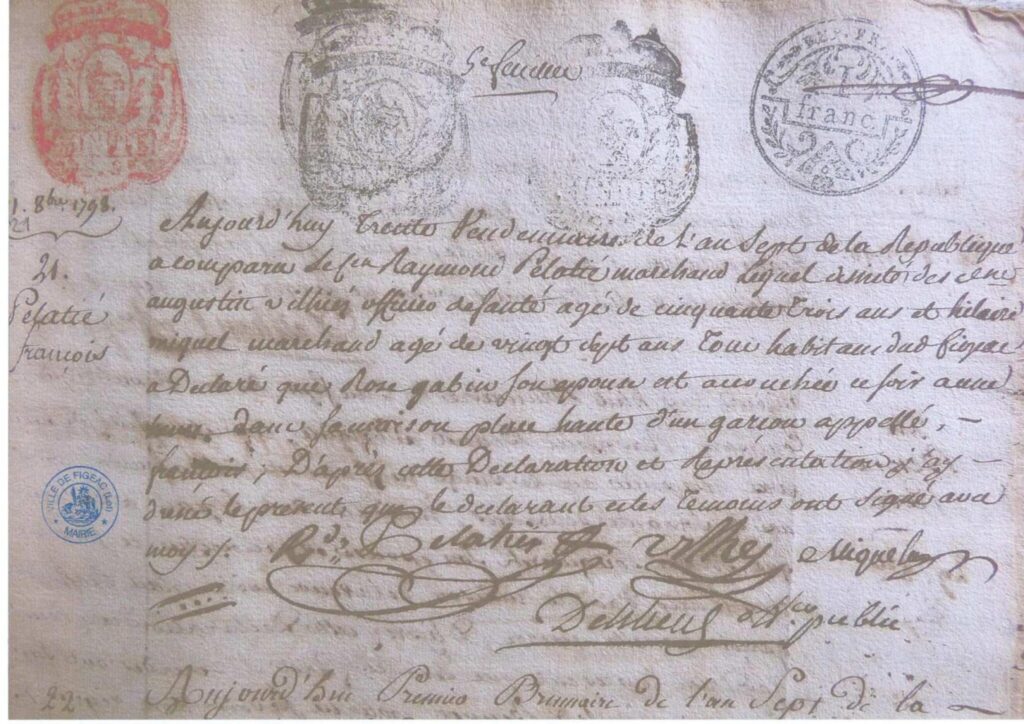 5e feuillet
REP. FRA.
1
franc
21. 8bre 1798.
21.
Pelatié
françois
Aujourd'huy trente Vendemiaire de l'an Sept de la Republique
a comparu le cen Raymond Pelatié marchand lequel assisté des cens
augustin vilhiés officier de santé agé de cinquante trois ans et hilaire
miquel marchand agé de vingt sept ans tous habitans dud figeac
a Declaré que Rose gabin son epouse est accouchée ce soir a une
heure dans sa maison place haute d'un garçon appellé, -
françois; D'après cette Declaration et Représentation j'ay -
dressé le present que le declarant et les temoins ont signé avec
moy
Rd. Pelatié Vilhes Miquel
off. public
VILLE DE FIGEAC (Lot)
MAIRIE
22 Aujourd'hui Premier Brumaire de l'an Sept de la -